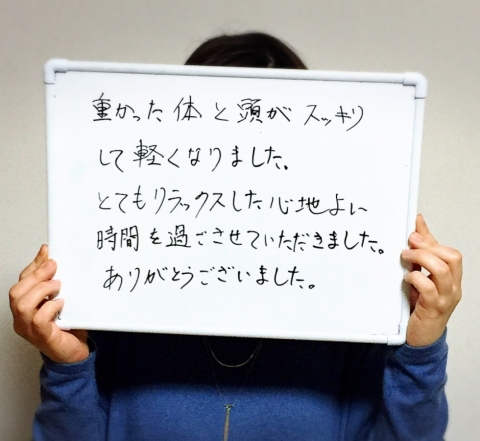 重かった体と頭がスッキリ
して軽くなりました。
とてもリラックスした心地よい
時間を過ごさせていただきました。
ありがとうございました。